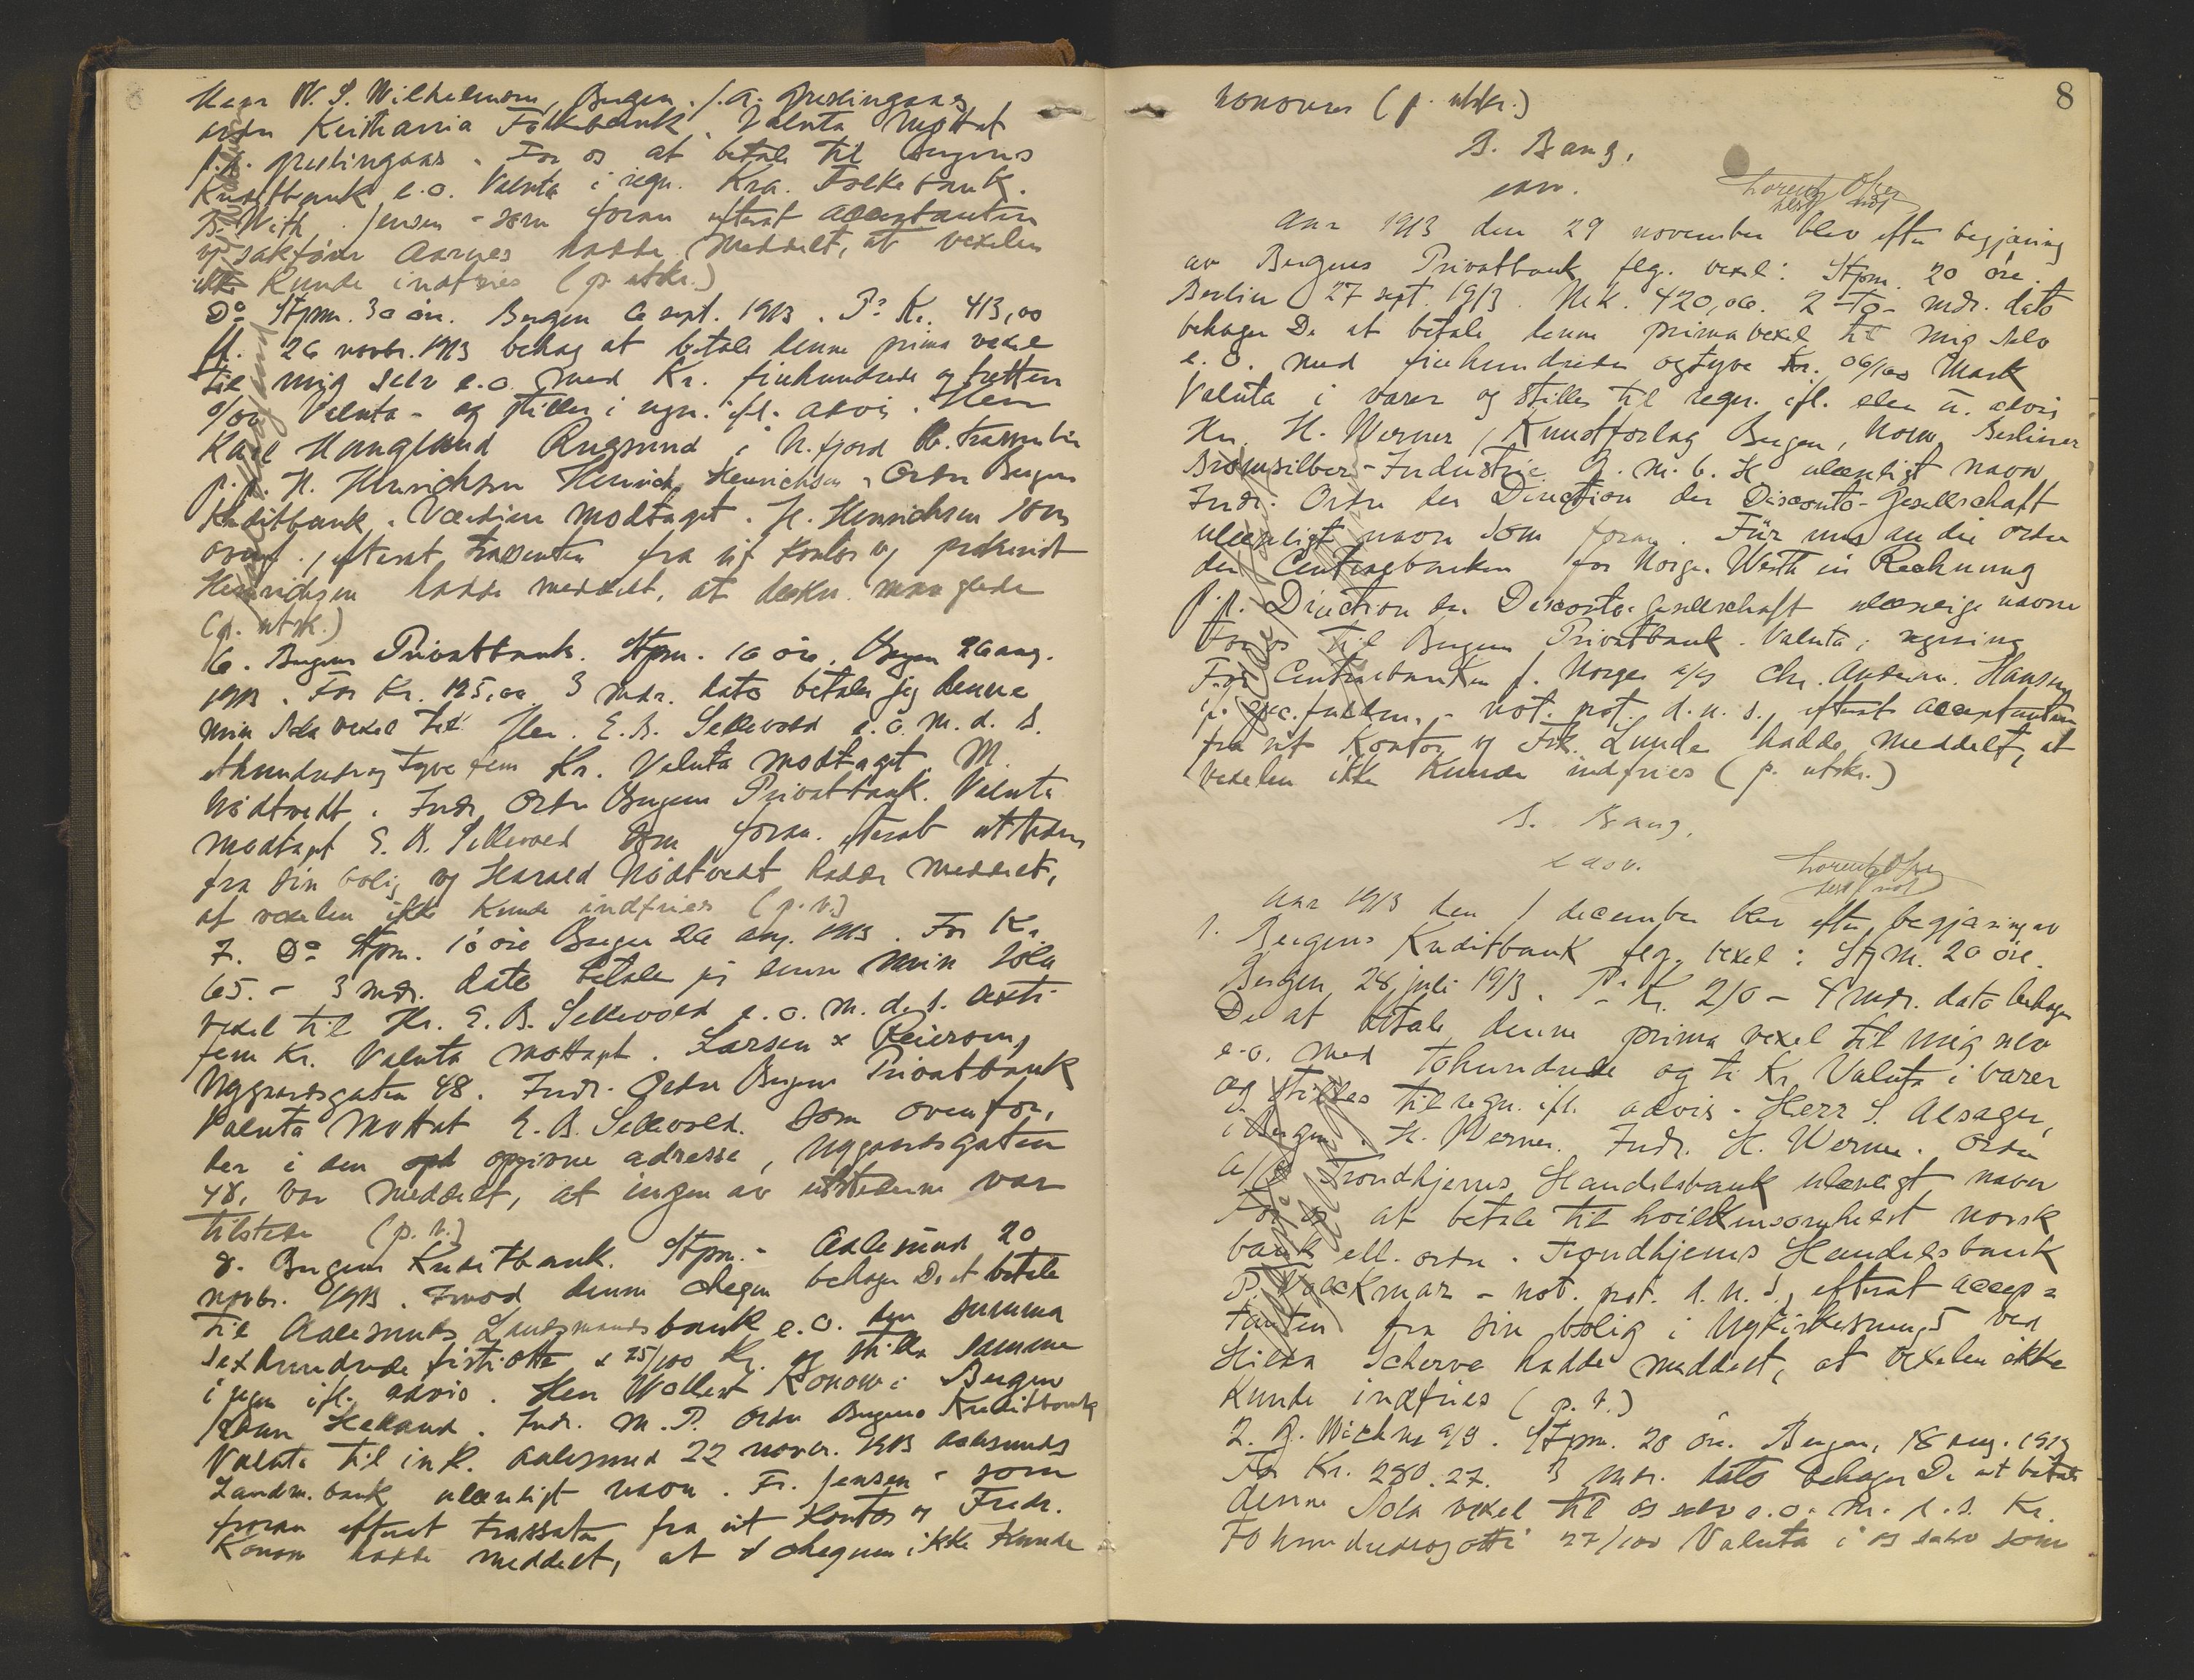 Herr W. S. Wilhelmsen, Bergen. f. a. Greslingaas
ordre Kristiania Folkebank. Valuta mottat
p.p. Greslingaas. For os at betale til Bergens
Kreditbank e.o. Valuta i regn. Kra. Folkebank.
B. With. Jensen - som foran efterat acceptanten
v/ sakfører Aarnes hadde meddelt, at vexelen
ikke kunde indfries (p. utskr.)
Do Stpm. 30 øre. Bergen 6 sept. 1913. Pr Kr. 413,00
pr. 26 novbr. 1913 behag at betale denne prima vexel
til mig selv e.o. med Kr. firehundrede og tretten
0/00 Valuta - og stilles i regn. ifl. advis. Herr
Karl Haugland Rugsund i N.fjord
p.p. H. Henrichsen Henrich Henrichsen. Ordre Bergens
Kreditbank. Værdien modtaget. H. Henrichsen som
ovenf., efterat trassenten fra sit kontor og prokurist
Henrichsen hadde meddelt, at dækn. manglede
(p. utsk.)
6. Bergens Privatbank. Stpm. 10 øre. Bergen 26 aug.
1913. For Kr. 125,00 3 mdr. dato betaler jeg denne
min Sola vexel til Herr. E. B. Sellevold e.o. m. d. S.
ethundredeogtyvefem Kr. Valuta modtaget. M.
Nødtvedt. Indr. Ordre Bergens Privatbank. Valuta
modtaget E. B. Sellevold som foran. efterat utstederen
fra sin bolig og Harald Nødtvedt hadde meddelt,
at vexelen ikke kunde indfries (p. t.)
7. Do Stpm. 10 øre Bergen 26 aug. 1913. For Kr.
65.- 3 mdr. dato betaler jeg denne min Sola
vexel til Hr. E. B. Sellevold e.o. m. d. S. sexti
fem Kr. Valuta mottaget. Larsen & Reiersen,
Nygaardsgaten 48. Indr. Ordre Bergens Privatbank
Valuta Mottat E. B. Sellevold. som ovenfor,
der i den opgivne adresse, Nygaardsgaten
48, var meddelt, at ingen av utstederne var
tilstede (p. t.)
8. Bergens Kreditbank. Stpm. - Aalesund 20
novbr. 1913. Imod denne cheque behager De at betale
til Aalesunds Landmandsbank e.o. den summa
sexhundrede firtiotte & 75/100 Kr. og stille samme
i regn ifl. advis. Herr Wollert Konow i Bergen
Helland. Indr. M. P. Ordre Bergens Kreditbank
Valuta til ink. Aalesund 22 novbr. 1913 Aalesunds
Landm. bank ulæseligt navn. Fr. Jensen - som
foran efterat trassaten fra sit kontor og Fredr.
Konow hadde meddelt, at chequen ikke kunde
8
honoreres (p. utskr.)
B. Bang,
edsv.
Lorentz Olsen
test not
Aar 1913 den 29 november blev efter begjæring
av Bergens Privatbank flg. vexel: Stpm. 20 øre.
Berlin 27 sept. 1913. Mrk. 420,06. 2 - to - mdr. dato
behager De at betale denne primavexel til mig selv
e.o. med firehundrede ogtyve Kr. 06/100 Mark
Valuta i varer og stilles til regn. ifl. eller u. advis
Hr. H. Werner, Kunstforlag Bergen, Norw. Berliner
Bromsilber-Industrie G. m. b. H ulæseligt navn
Indr. Ordre der Direction der Disconto-Gesellschaft
ulæseligt navn som foran. Für uns an die ordre
der Centralbanken for Norge. Werth in Rechnung
p.p. Direction der Disconto-Gesellschaft ulæselige navne
For os til Bergens Privatbank. Valuta i regning
For Centralbanken f. Norge a/s Chr. Andersen. Hansen
- not. prot. d. n. s., efterat acceptanten
fra sit kontor og Frk. Lunde hadde meddelt, at
vexelen ikke kunde indfries (p. utskr.)
B. Bang.
edsv.
Lorentz Olsen
test not
Aar 1913 den 1 december blev efter begjæring av
1. Bergens Kreditbank flg. vexel: Stpm. 20 øre.
Bergen, 28 juli 1913. Pr Kr. 210 - 4 mdr. dato behager
De at betale denne prima vexel til mig selv
e.o. med tohundrede og ti Kr. Valuta i varer
og stilles til regn. ifl. advis. Herr S. Alsager,
i Bergen. H. Werner. Indr. H. Werner. Ordre
A/S Trondhjems Handelsbank ulæseligt navn
For os at betale til hvilkensomhelst norsk
bank ell. ordre. Trondhjems Handelsbank
P. Volckmar - not. prot. d. n. S., efterat accep=
tanten fra sin bolig i Nykirkesmug 5 ved
Hilda Scherve hadde meddelt, at vexelen ikke
kunde indfries (p. t.)
2. G. Wichne a/s. Stpm. 20 øre. Bergen, 18 aug. 1913
For Kr. 280.27. 3 mdr. dato behager De at betale
denne Sola vexel til os selv e.o. m. d. s. Kr.
Tohundredeogotti 27/100 Valuta i os selv som